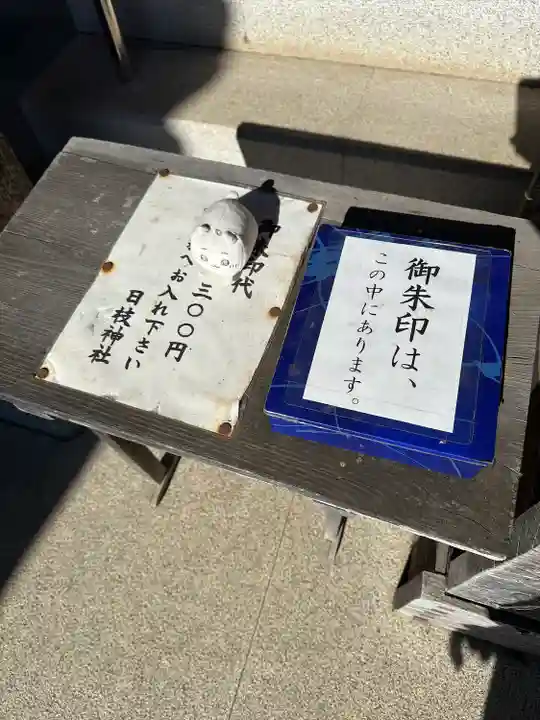 御朱印は、
この中にあります。
御朱印代
三〇〇円
へお入れ下さい
日枝神社